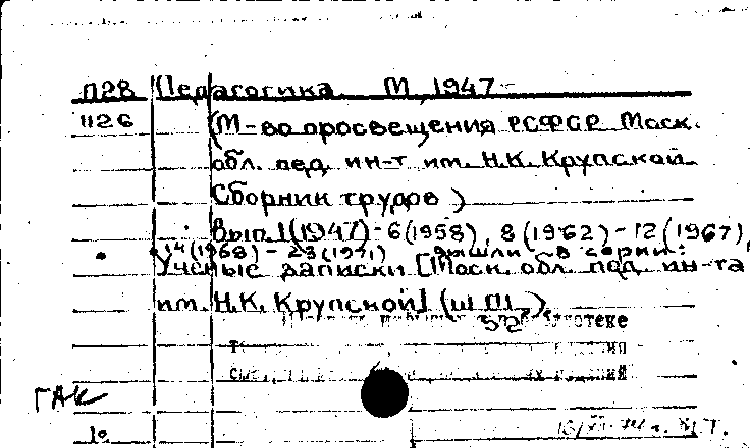 П28 Педагогика. М., 1947-
1126 (М-во просвещения РСФСР. Моск.
обл. пед. ин-т им. Н.К. Крупской.
Сборник трудов)
Вып. 1(1947)-6(1958), 8(1962)-12(1967),
14(1968)-23(1971) вышли в серии:
Ученые записки [Моск. обл. пед. ин-та
им. Н.К. Крупской]
ГАК